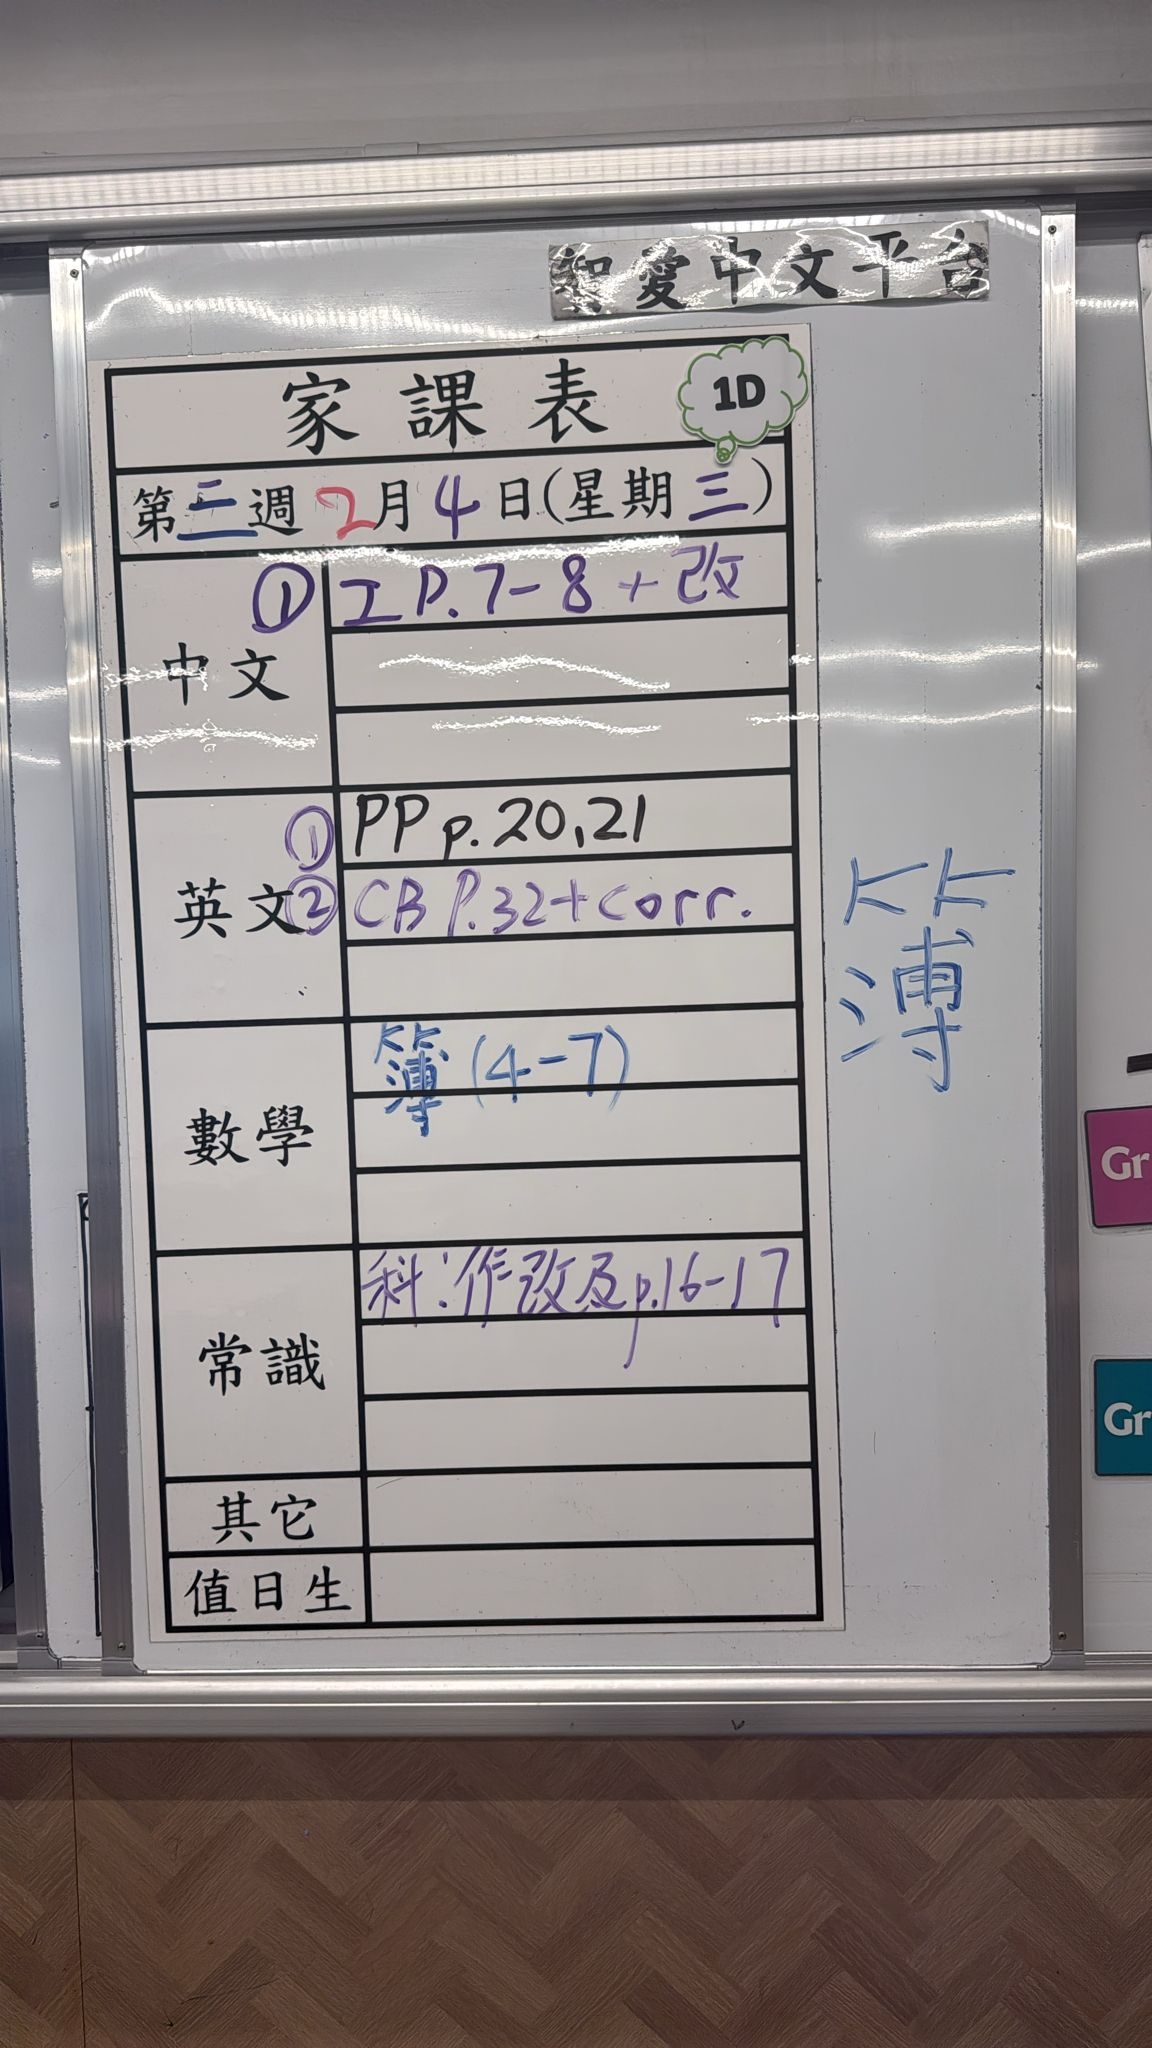 愛中文平台
家課表
1D
第二週 2月4日(星期三)
中文
① 工 P.7-8 + 改
英文
① PP p.20,21
② CB P.32+corr.
數學
簿 (4-7)
簿
常識
科：作改及p.16-17
其它
值日生
Gr
Gr